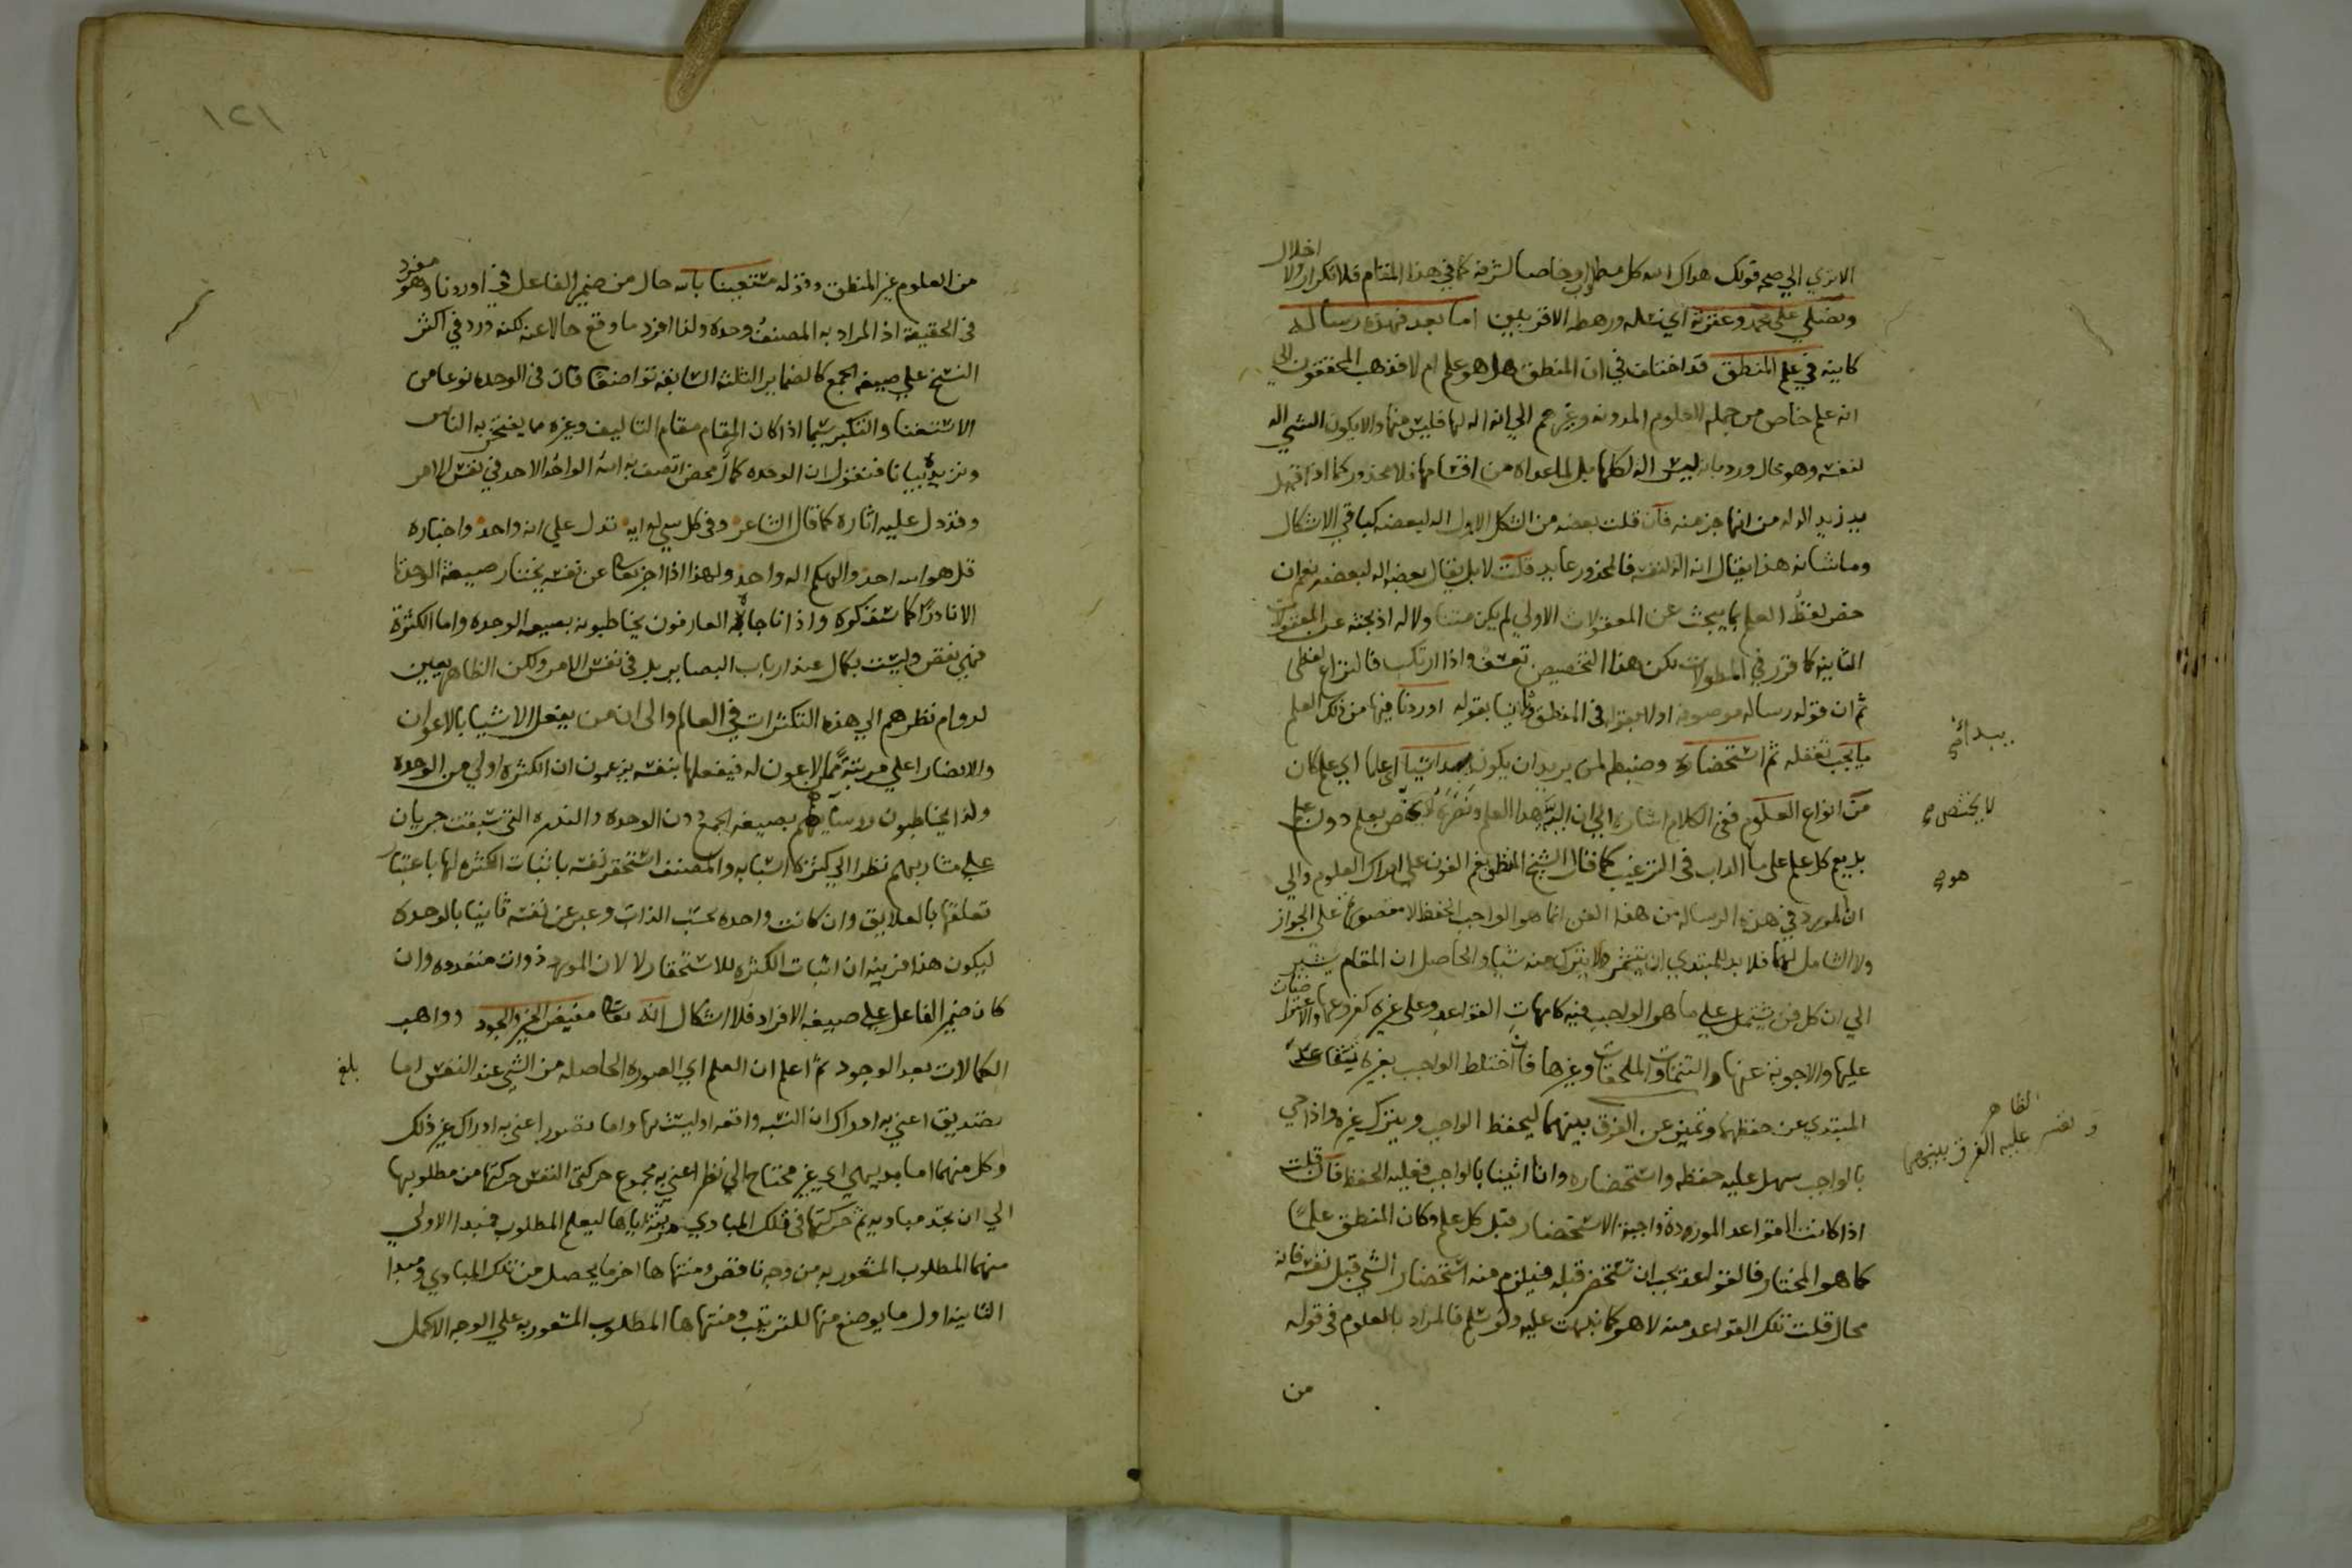 الا تري الي صحة قولك هداك الله كل مطلا وخاصا لشرفه كما في هذا المقام فلا تكرار ولا اخلال
ونصلي علي محمد وعترته اي نسله ورهطه الاقربين اما بعد فهذه رسالة
كاينة في علم المنطق قد اختلف في ان المنطق هل هو علم ام لا فذهب المحققون الي
انه علم خاص من جملة العلوم المدونة وغيرهم الي انه اله لها فليس منها والا يكون الشي اله
لنفسه وهو محال ورد بانه ليس اله لكلها بل لما عداه من اقسامها فلا محذور كما اذا قيل
يد زيد اله من انها جز منه فان قلت بعضه من الشكل الاول اله لبعضه كباقي الاشكال
وما شانه هذا يقال انه اله لنفسه فالمحذور عايد قلت لا بل يقال بعضه اله لبعضه نعم ان
خص لفظ العلم بما يبحث عن المعقولات الاولي لم يكن متناولا له اذ بحثه عن المعقولات
الثانية كما قرر في المطولات لكن هذا التخصيص تعسف واذا ارتكب فالنزاع لفظي
ثم ان قوله رسالة موصوفة اولا بقوله في المنطق وثانيا بقوله اوردنا فيها من ذلك العلم
ما يجب تعقله ثم استحضاره وضبطه لمن يريد ان يكون اي علما اي علم كان
يبدا في
من انواع العلوم ففي الكلام اشارة الي ان هذا العلم لا يختص بعلم دون علم
لا يختص صح
بل يعم كل علم علي ما الداب في الترغيب كما قال الشيخ المنطق نعم العون علي ادراك العلوم والي
هو صح
ان المورد في هذه الرسالة من هذا الفن انما هو الواجب الحفظ لا مقصورا علي الجواز
ولا الشامل لهما فلا بد للمبتدي ان ولا يترك منه شيا والحاصل ان المقام يشير
الي ان كل فن يشتمل علي ما هو الواجب فيه كامهات القواعد وعلي غيره كفروعها والاعتراضات
عليها والاجوبة عنها والتتمات والملحقات وغيرها فان اختلط الواجب بغيره يتقاعد
المبتدي عن حفظهما وتميز عن الفرق بينهما ليحفظ الواجب ويترك غيره واذا جي
الظاهر
وتعسر عليه الفرق بينهما
بالواجب سهل عليه حفظه واستحضاره وانا اتينا بالواجب فعليه الحفظ فان قلت
اذا كانت القواعد الموردة واجبة الاستحضار قبل كل علم وكان المنطق علما
كما هو المختار فالقواعد يجب ان تستحضر قبله فيلزم منه استحضار الشي قبل نفسه فانه
محال قلت تلك القواعد منه لا هو كما نبهت عليه ولو سلم فالمراد بالعلوم في قوله
من
١٢١
من العلوم غير المنطق وقوله مستعينا بانه حال من ضمير الفاعل في اوردنا وهو مفرد
في الحقيقة اذ المراد به المصنف وحده ولذا افرد ما وقع حالا عنه لكنه ورد في اكثر
النسخ علي صيغة الجمع كالضماير الثلثة السابقة تواضعا فان في الوحدة نوعا من
الاستغنا والتكبر سيما اذا كان المقام مقام التاليف وغيره مما يفتخر به الناس
ونزيده بيانا فنقول ان الوحدة كمال محض اتصف به الله الواحد الاحد في نفس الامر
وقد دل عليه اثاره كما قال الشاعر وفي كل شي له اية تدل علي انه واحد واخباره
قل هو الله احد والهكم اله واحد ولهذا اذا اخبر تعالي عن نفسه يختار صيغة الوحدة
الا نادرا كما ستذكره واذا ناجاه العارفون يخاطبونه بصيغة الوحدة واما الكثرة
فهي نقص وليست بكمال عند ارباب البصاير بل في نفس الامر ولكن الظاهريين
لدوام نظرهم الي هذه التكثرات في العالم والي ان من يفعل الاشيا بالاعوان
والانصار اعلي مرتبة مما لا عون له فيفعلها بنفسه يزعمون ان الكثرة اولي من الوحدة
ولذا يخاطبون روساءهم بصيغة الجمع دون الوحدة والندرة التي سبقت جريان
علي مشاربهم نظرا الي كثرة اسبابه والمصنف استحقر نفسه باثبات الكثرة لها باعتبار
تعلقها بالعلايق وان كانت واحدة بحسب الذات وعبر عن نفسه ثانيا بالوحدة
ليكون هذا قرينة ان اثبات الكثرة للاستحقار لا لان المورد ذوات متعددة وان
كان ضمير الفاعل علي صيغة الافراد فلا اشكال انه تعالي مفيض الخير والجود وواهب
الكمالات بعد الوجود ثم اعلم ان العلم اي الصورة الحاصلة من الشي عند النفس اما
بلغ
تصديق اعني به ادراك ان النسبة واقعة او ليست بها واما تصور اعني به ادراك غير ذلك
وكل منهما اما بديهي اي غير محتاج الي نظر اعني به مجموع حركتي النفس حركتها من مطلوبها
الي ان تجد مباديه ثم حركتها في تلك المبادي مرتبة اياها ليعلم المطلوب فمبدا الاولي
منهما المطلوب المشعور به من وجه ناقص ومنتهاها اخر ما يحصل من تلك المبادي ومبدا
الثانية اول ما يوضع منها للترتيب ومنتهاها المطلوب المشعور به علي الوجه الاكمل